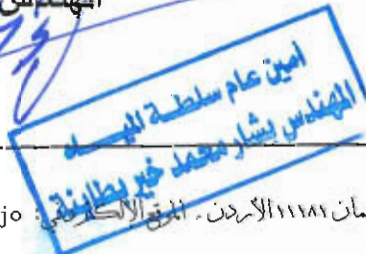 المهندس
أمين عام سلطة المياه
المهندس بشار محمد خير بطاينة
مان ١١١٨١ الأردن . الموقع الإلكتروني: jo